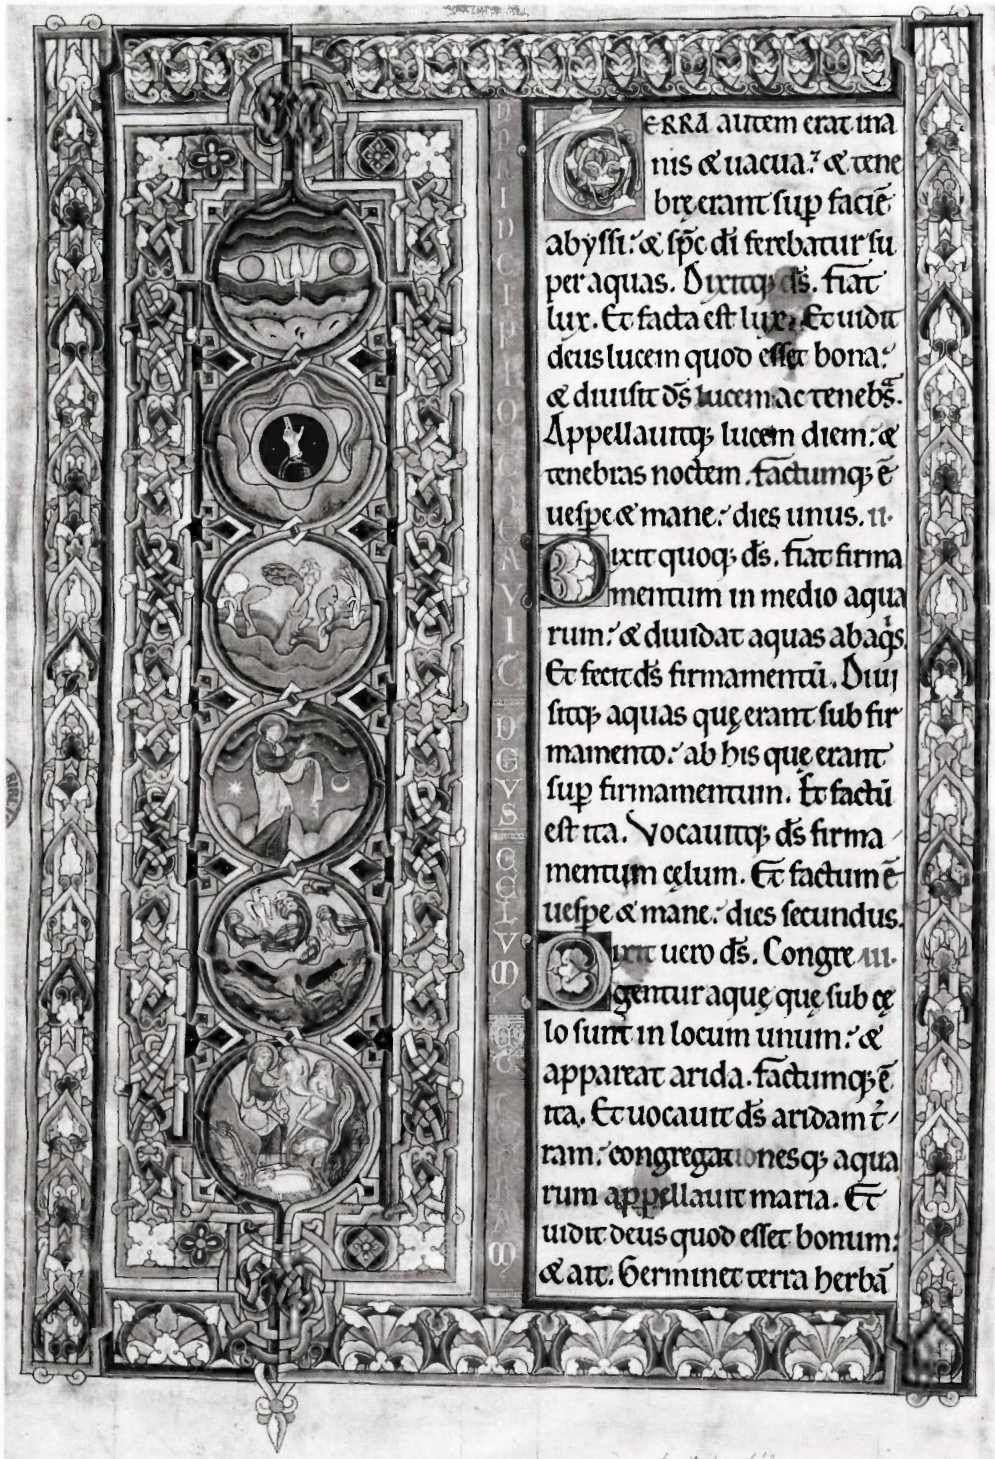 IN PRINCIPIO CREAVIT DEUS CELUM ET TERRAM
TERRA autem erat ina
nis & uacua: & tene
brę erant sup faciē
abyssi: & sp̄c dī ferebatur su
per aquas. Dixitq; ds̄. fiat
lux. Et facta est lux. Et uidit
deus lucem quod esset bona:
& diuisit ds̄ lucem ac tenebs̄.
Appellauitq; lucem diem: &
tenebras noctem. factumq; ē
uespe & mane: dies unus. II.
Dixit quoq; ds̄. fiat firma
mentum in medio aqua
rum: & diuidat aquas ab aqs̄.
Et fecit ds̄ firmamentū. Diui
sitq; aquas quę erant sub fir
mamento: ab his quę erant
sup firmamentum. Et factū
est ita. Vocauitq; ds̄ firma
mentum cęlum. Et factum ē
uespe & mane: dies secundus.
Dixit uero ds̄. Congre III.
gentur aquę quę sub cę
lo sunt in locum unum: &
appareat arida. factumq; ē
ita. Et uocauit ds̄ aridam t̄
ram: congregationesq; aqua
rum appellauit maria. Et
uidit deus quod esset bonum:
& ait. Germinet terra herbā